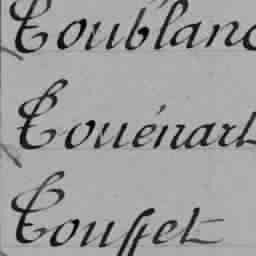 Toublanc
Touénart
Tousset